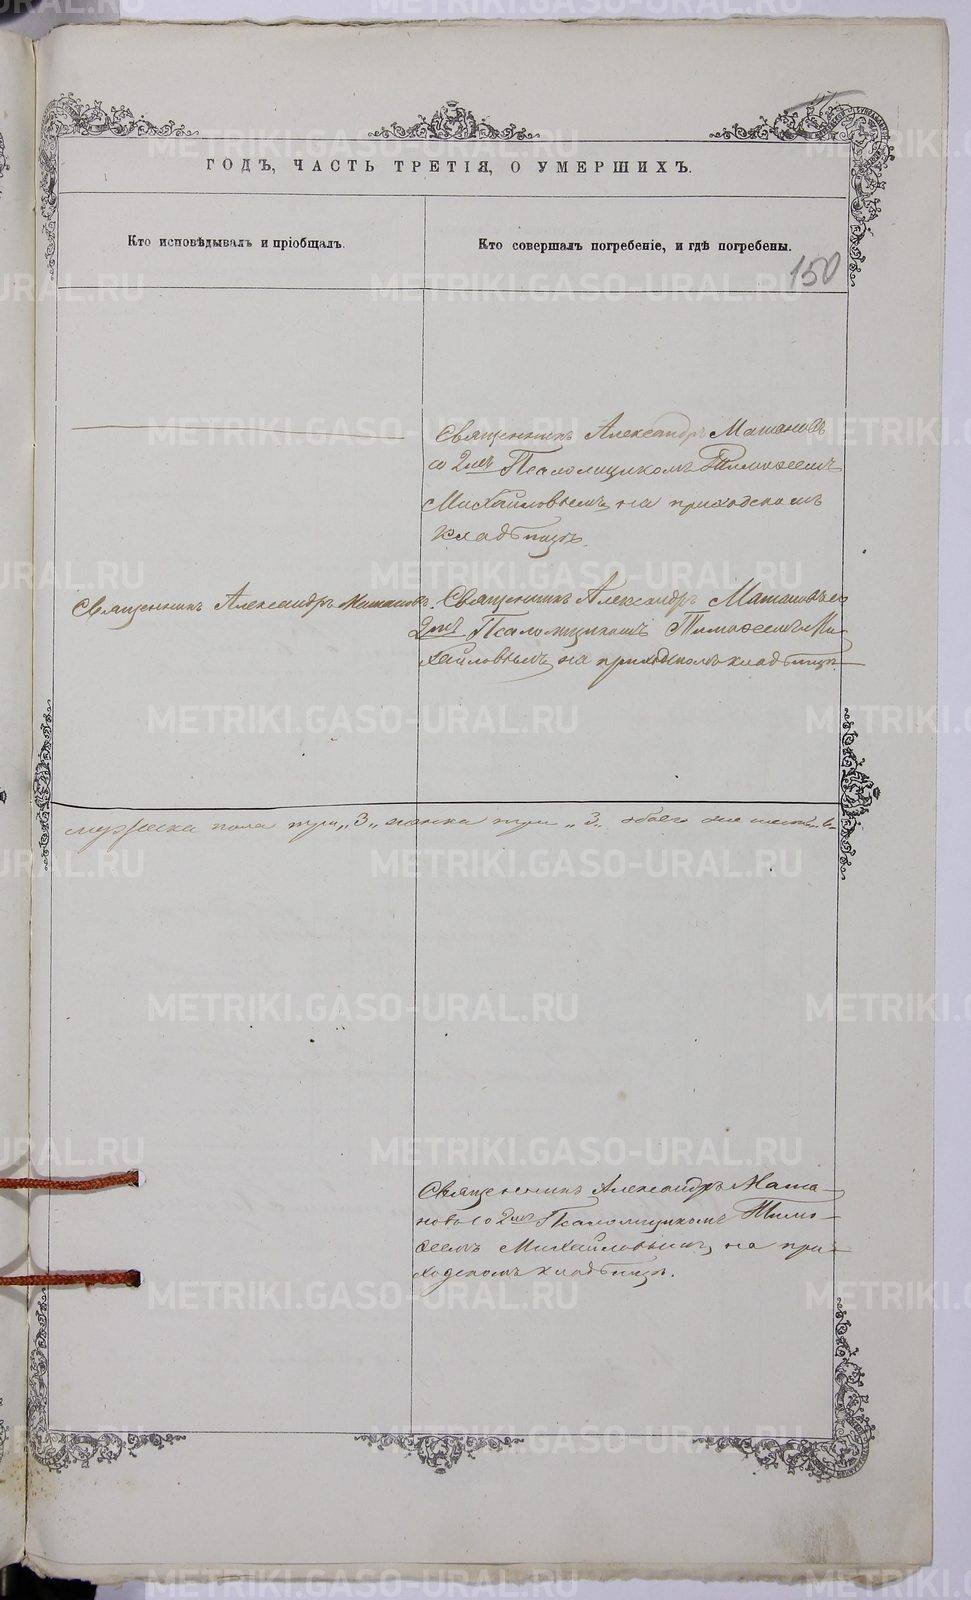 ГОДЪ, ЧАСТЬ ТРЕТІЯ, О УМЕРШИХЪ.
Кто исповѣдывалъ и пріобщалъ.
Кто совершалъ погребеніе, и гдѣ погребены.
150
Священникъ Александръ
со 2мъ Псаломщикомъ Тимофеемъ
Михайловымъ, на приходскомъ
кладбищѣ.
Священникъ Александръ
Священникъ Александръ Матановъ со
2мъ Псаломщикомъ Тимофеемъ Ми
хайловымъ, на приходскомъ кладбищѣ.
мужеска пола три „3„ женска три „3„ обоего
Священникъ Александръ Мата
новъ со 2мъ Псаломщикомъ Тимо
феемъ Михайловымъ, на при
ходскомъ кладбищѣ.
METRIKI.GASO-URAL.RU